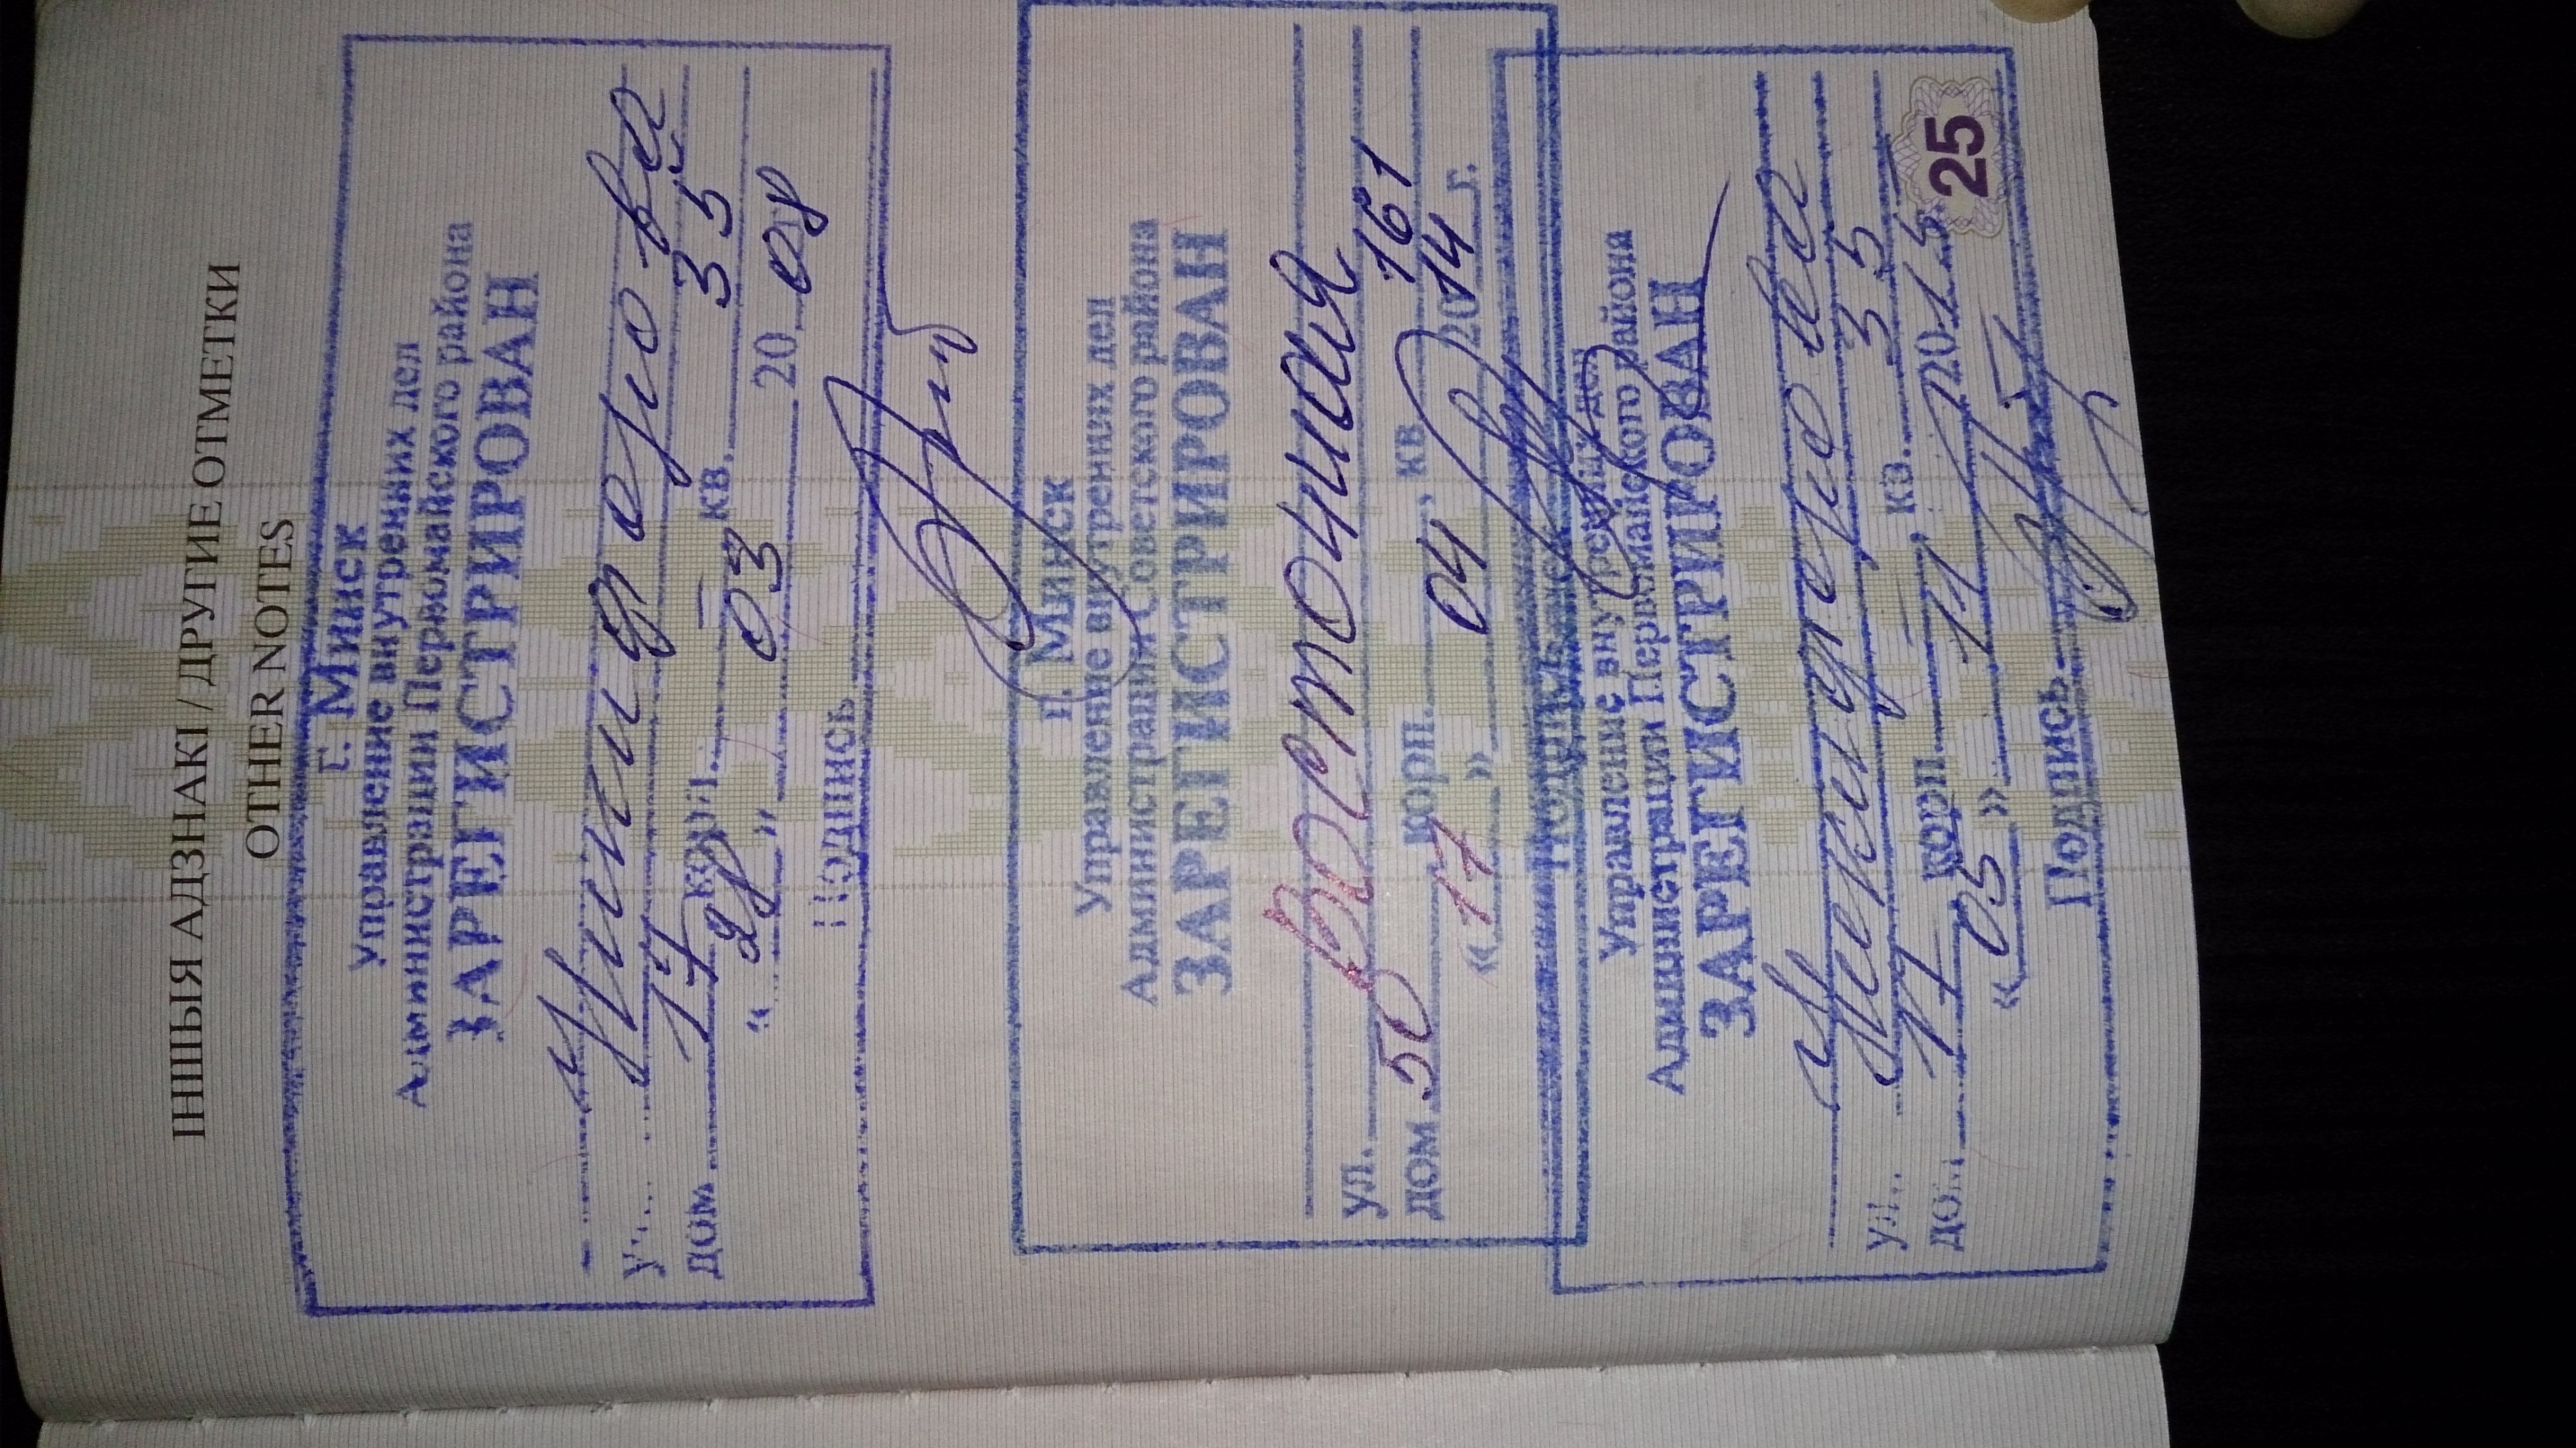 ІНШЫЯ АДЗНАКІ / ДРУГИЕ ОТМЕТКИ
OTHER NOTES
г. Минск
Управление внутренних дел
Администрации Первомайского района
ЗАРЕГИСТРИРОВАН
ул.
дом 17 корп. — кв. 35
" 28 " 03 20 08
Подпись
г. Минск
Управление внутренних дел
Администрации Советского района
ЗАРЕГИСТРИРОВАН
ул.
дом 50 корп. кв 161
« 17 » 04 2014 г.
Подпись
Управление внутренних дел
Администрации Первомайского района
ЗАРЕГИСТРИРОВАН
ул.
дом 17 корп — кв. 35
« 05 » 11 2015
Подпись
25